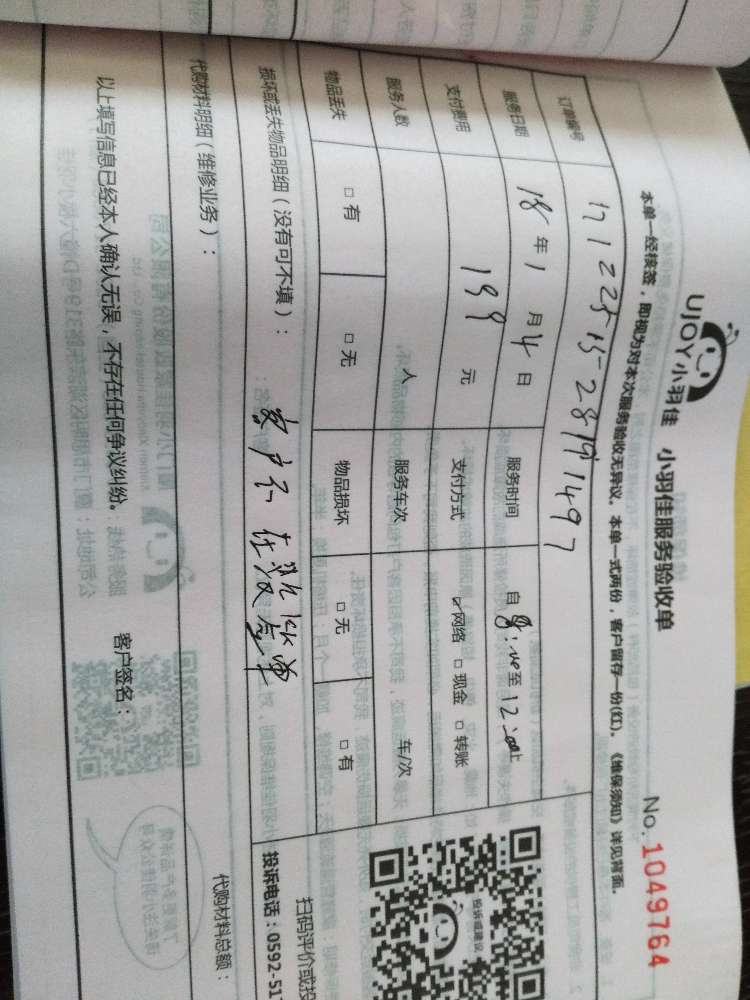 UJOY小羽佳 小羽佳服务验收单 No.1049764
本单一经接签，即视为对本次服务验收无异议。本单一式两份，客户留存一份(红)。《维保须知》详见背面。
订单编号 17122515-28191497
服务日期 18年1月4日 服务时间 自8:00至12:00止
支付费用 199元 支付方式 ☑网络 □现金 □转账
服务人数 人 服务车次 车/次
物品丢失 □有 □无 物品损坏 □无 □有
损坏或丢失物品明细（没有可不填）：
客户不在
代购材料明细（维修业务）：
代购材料总额：
以上填写信息已经本人确认无误，不存在任何争议纠纷。 客户签名：
投诉或建议
扫码评价或投
投诉电话：0592-517